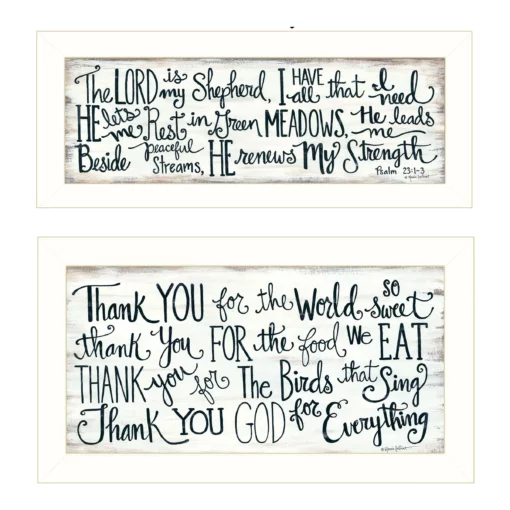 The LORD is my Shepherd, I HAVE all that I need
HE lets me Rest in Green MEADOWS, He leads me
Beside peaceful Streams, HE renews My Strength
Psalm 23:1-3
Thank YOU for the World so sweet
thank You FOR the food We EAT
THANK you for The Birds that Sing
Thank YOU GOD for Everything